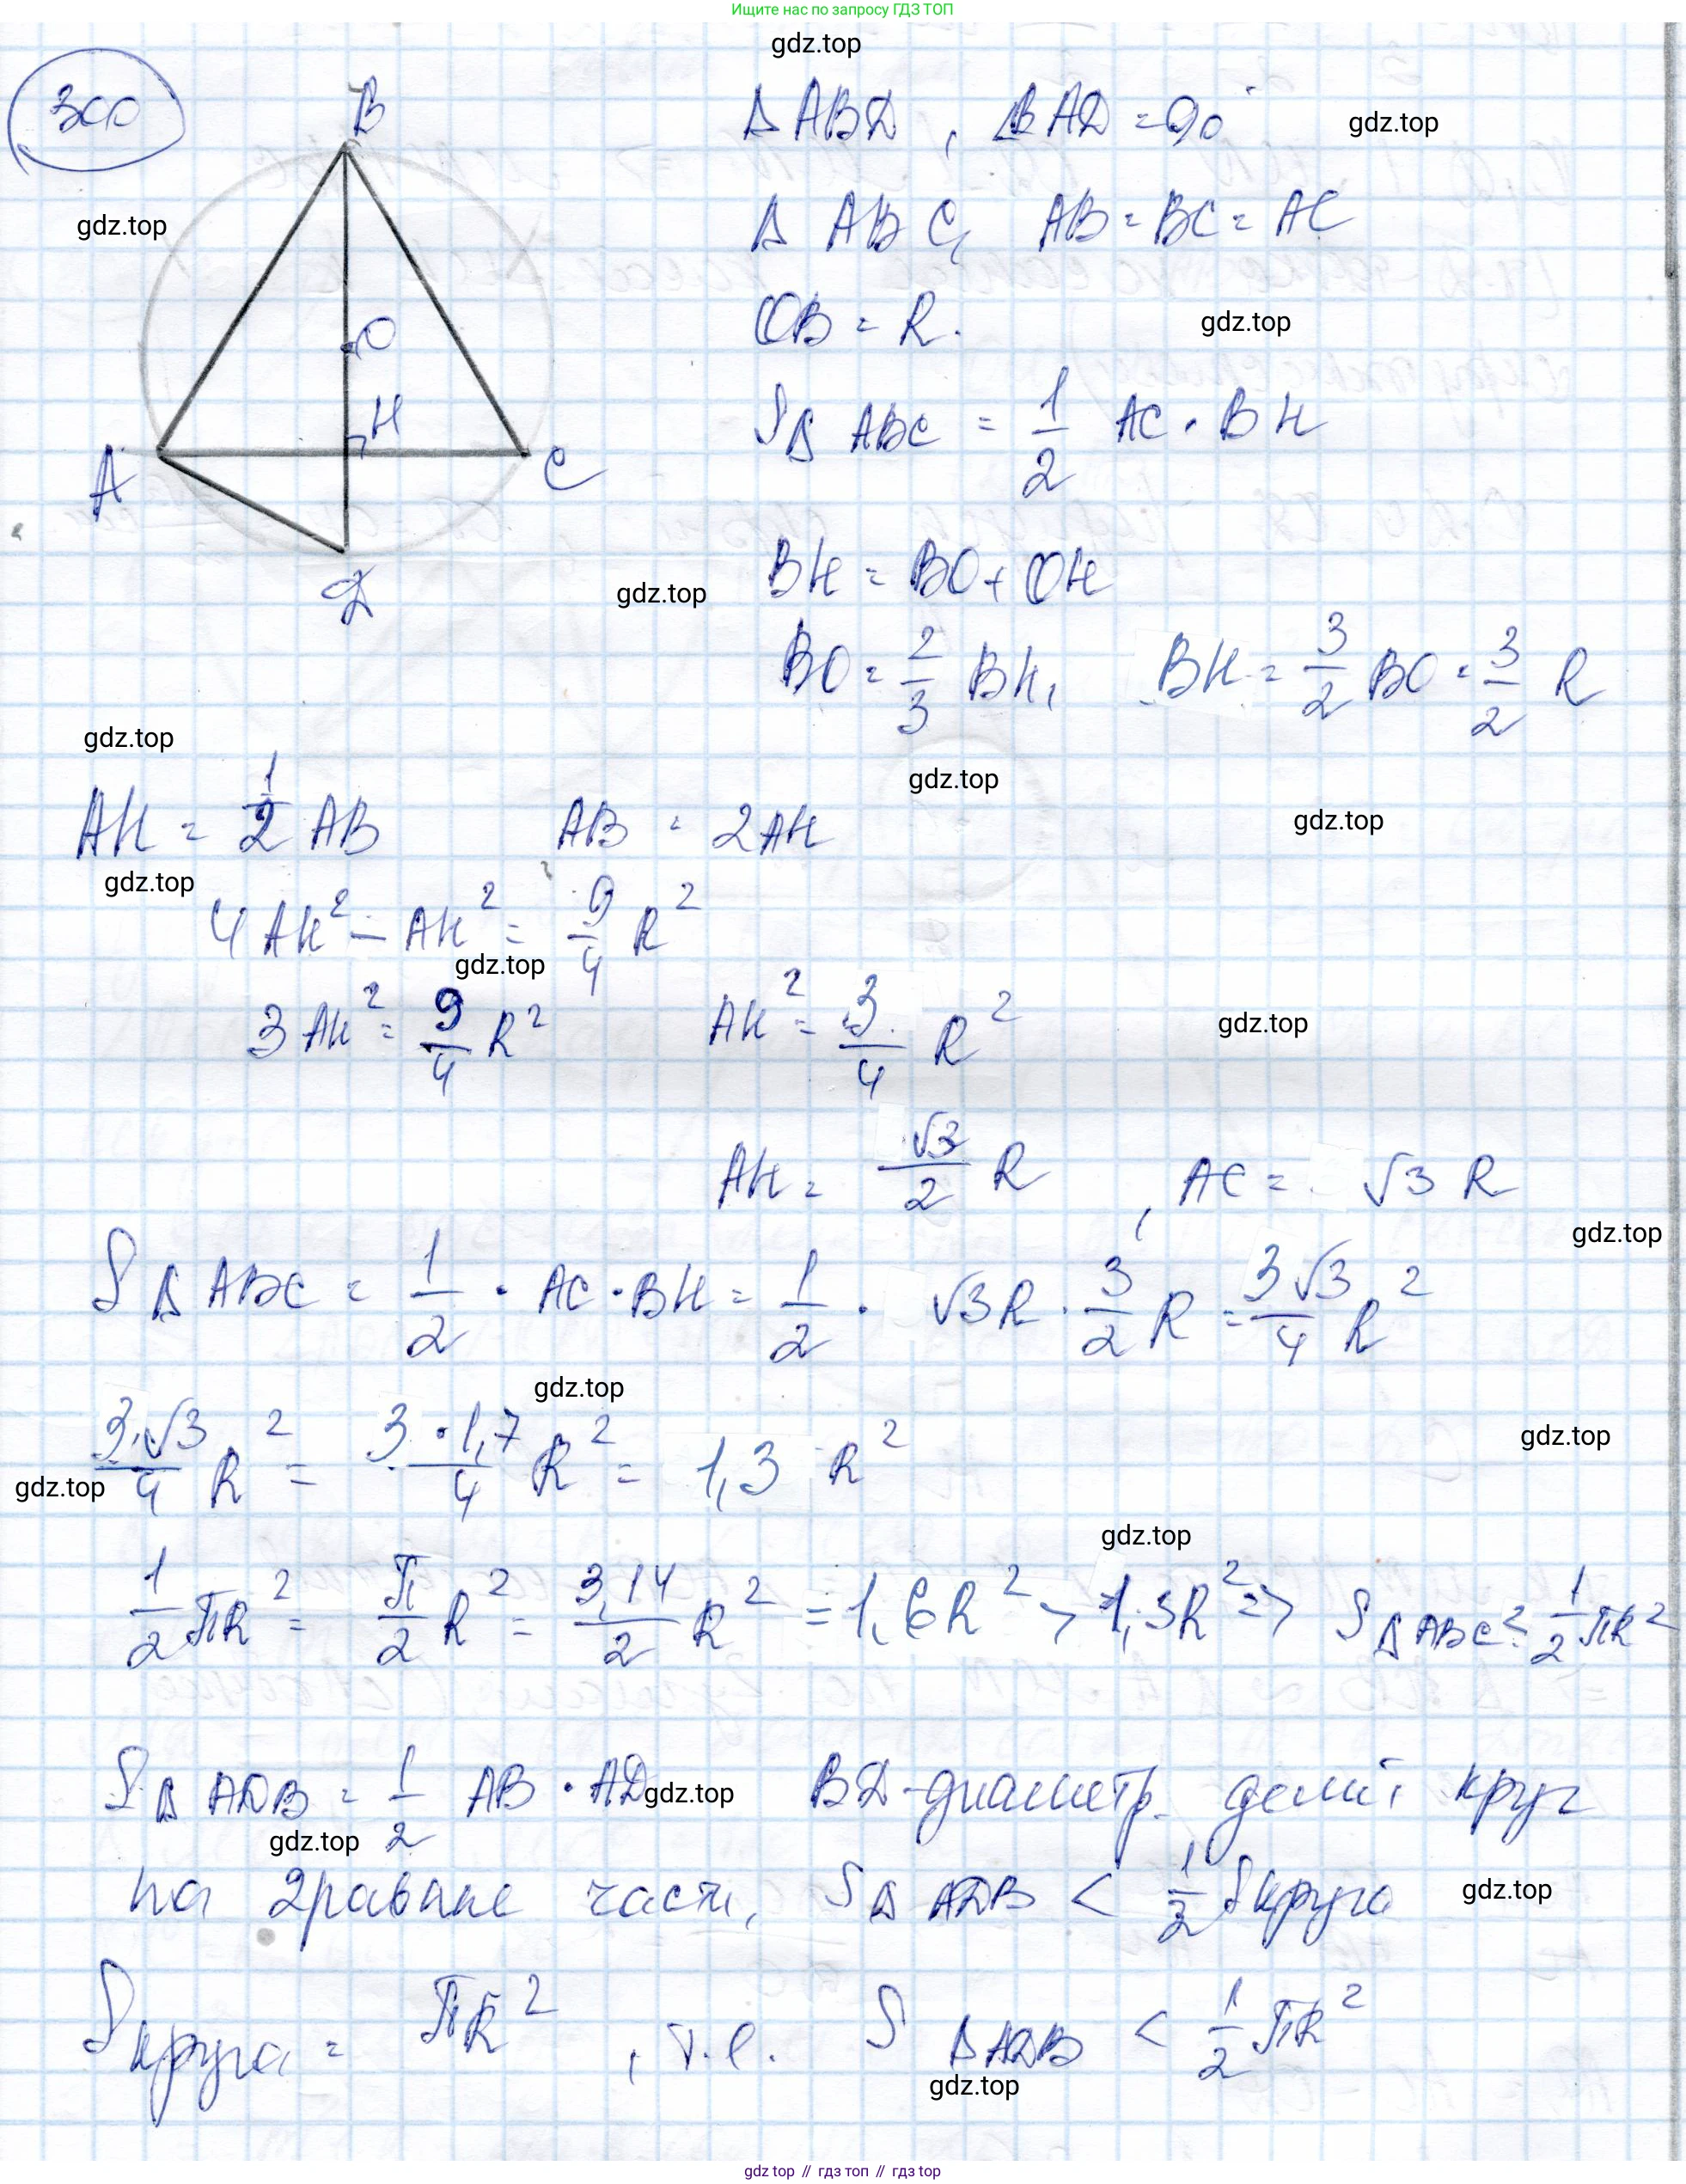 Ищите нас по запросу ГДЗ ТОП
gdz.top
300
B
O
H
A
C
D
Δ ABD, ∠BAD = 90°
gdz.top
gdz.top
Δ ABC, AB = BC = AC
OB = R.
gdz.top
S Δ ABC = 1/2 AC · BH
BH = BO + OH
gdz.top
BO = 2/3 BH, BH = 3/2 BO = 3/2 R
gdz.top
gdz.top
AH = 1/2 AB AB = 2AH
gdz.top
gdz.top
4AH² - AH² = 9/4 R²
gdz.top
3AH² = 9/4 R² AH² = 3/4 R²
gdz.top
AH = √3/2 R, AC = √3 R
gdz.top
S Δ ABC = 1/2 · AC · BH = 1/2 · √3R · 3/2 R = 3√3/4 R²
gdz.top
3·√3/4 R² = 3·1,7/4 R² = 1,3 R²
gdz.top
gdz.top
gdz.top
1/2 πR² = π/2 R² = 3,14/2 R² = 1,6R² > 1,3R² => S Δ ABC < 1/2 πR²
S Δ ADB = 1/2 AB · AD BD-диаметр, делит круг
gdz.top
gdz.top
на 2 равные части, S Δ ADB < 1/2 S круга
gdz.top
S круга = πR², т.е. S Δ ADB < 1/2 πR²
gdz.top
gdz top // гдз топ // gdz top